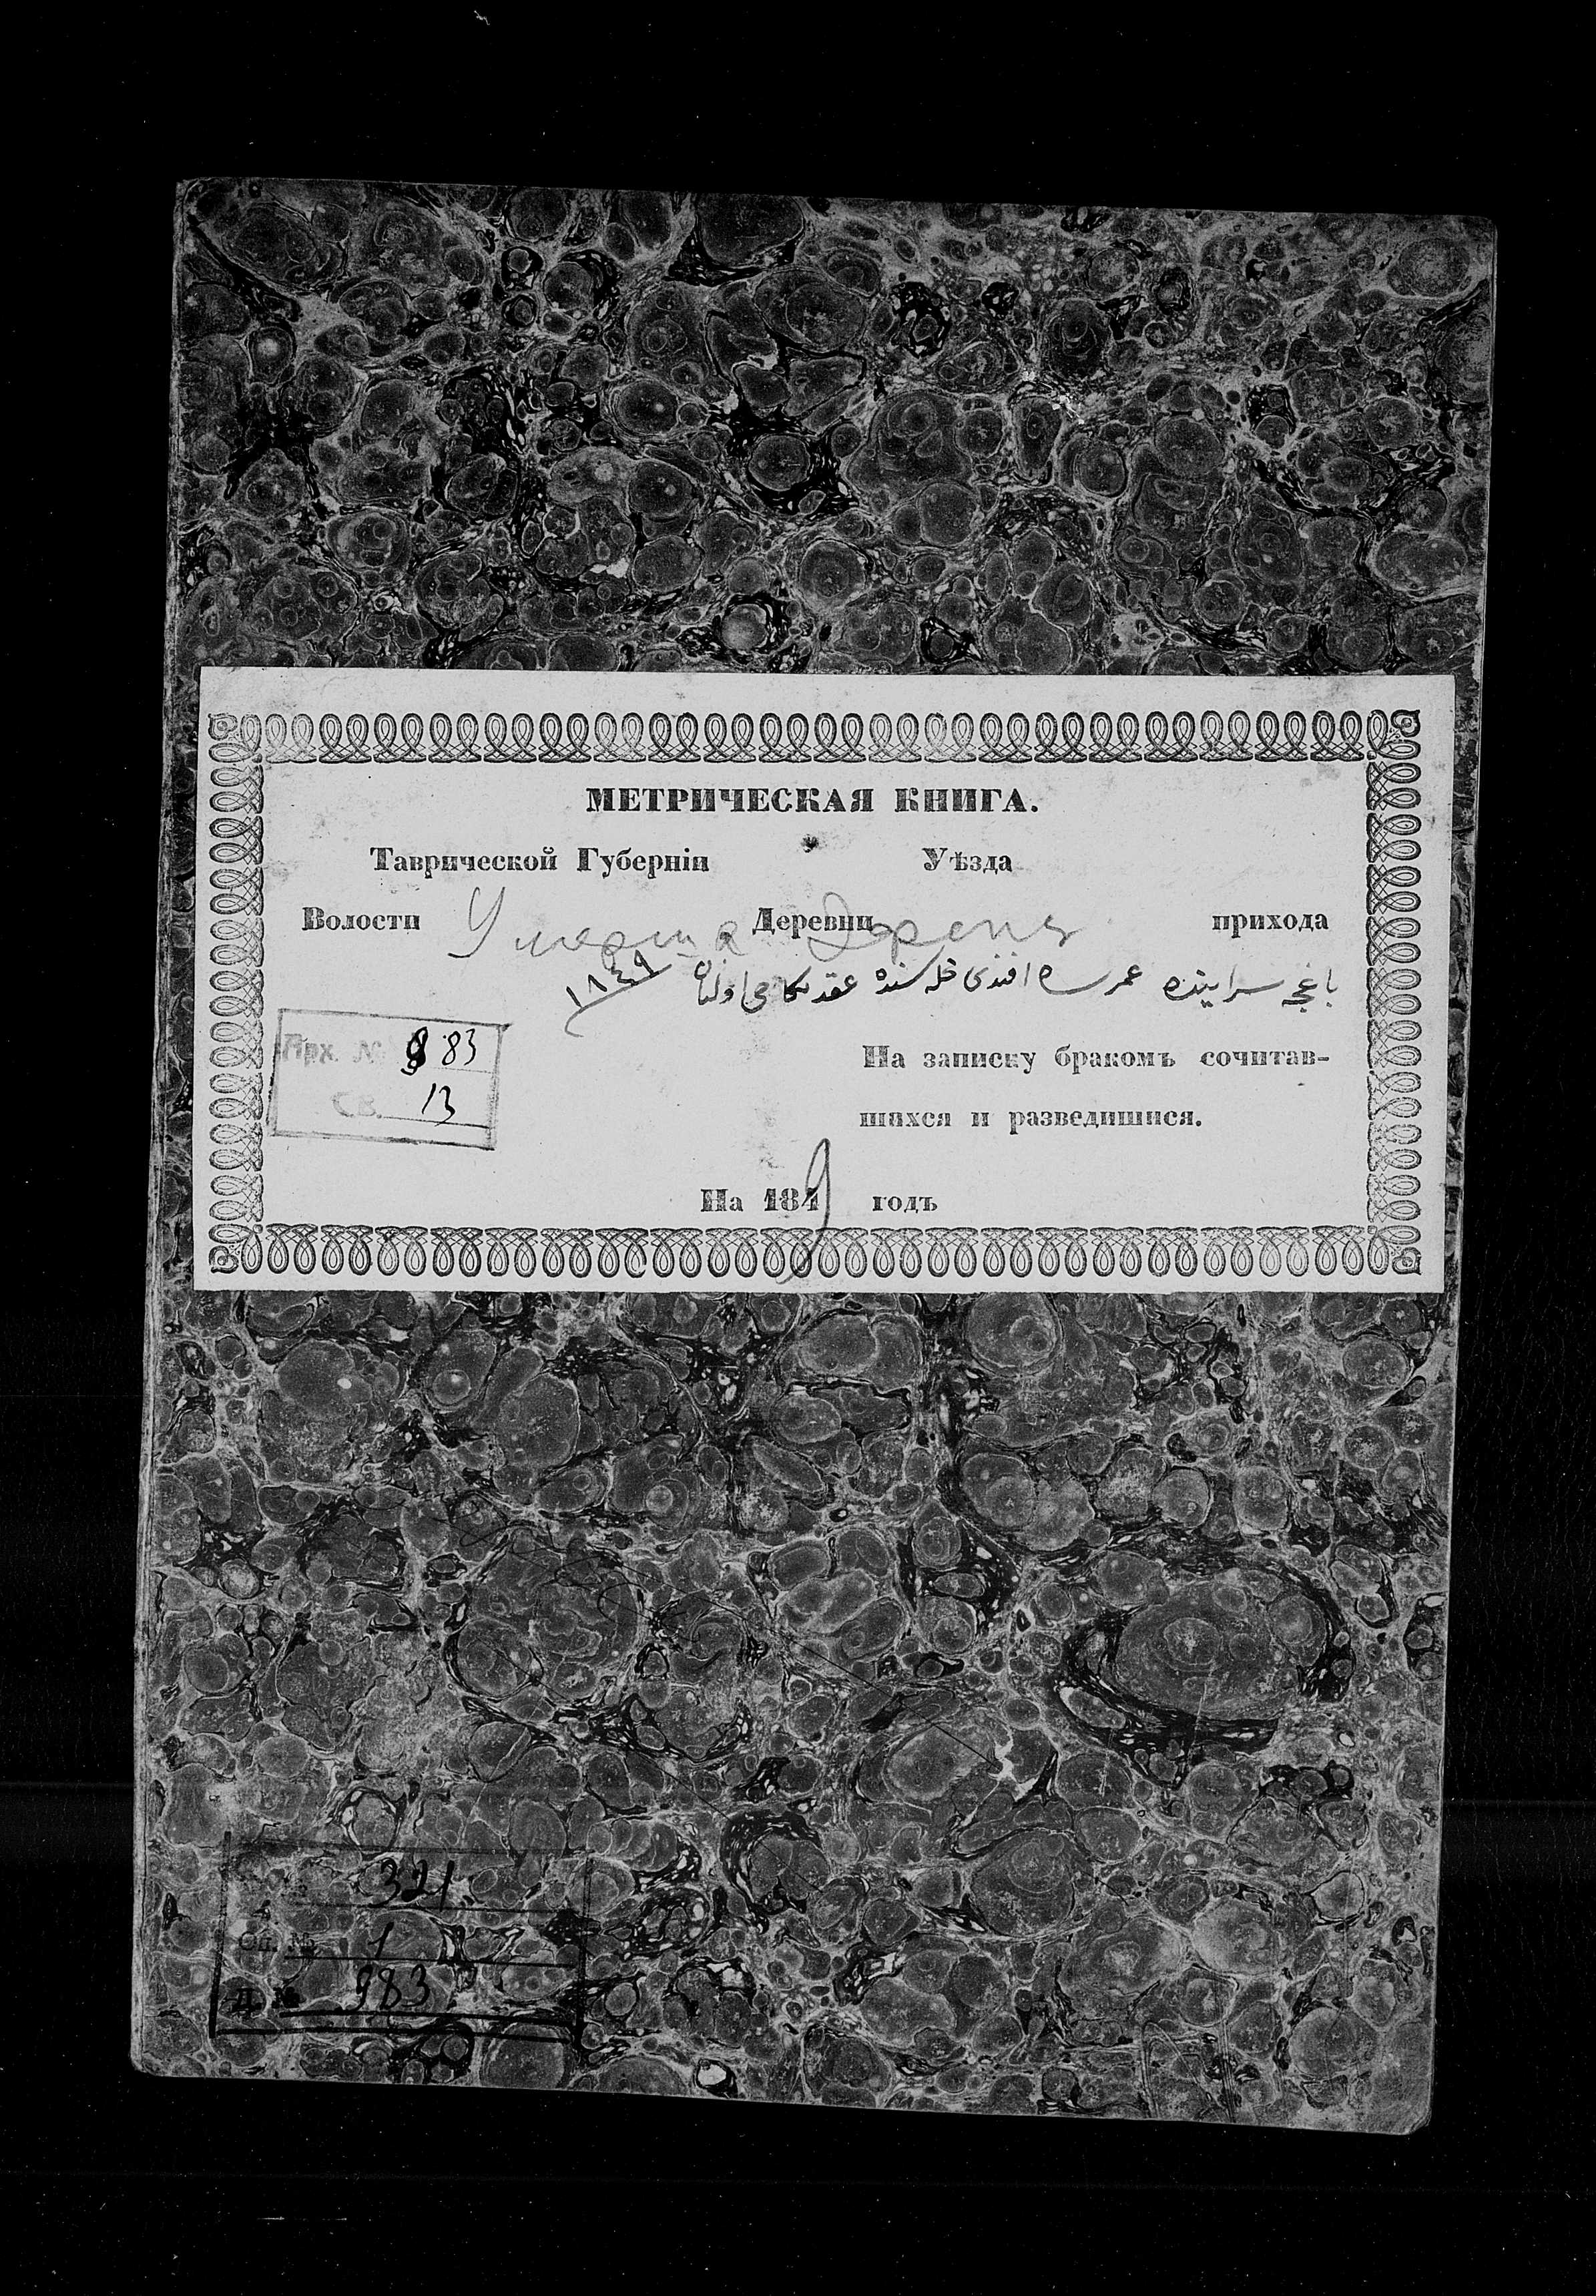 МЕТРИЧЕСКАЯ КНИГА.
Таврической Губерніи Уѣзда
Волости Деревни прихода
باغچه سرايينده عمر افندی محله سنده عقد نكاحی اولنان
١٨٤٩
Арх. № 983
СВ. 13
На записку бракомъ сочитав-
шихся и разведшихся.
На 1849 годъ
321
Оп. № 1
Д. № 983